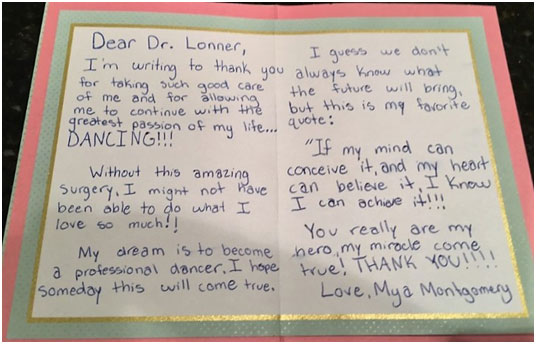 Dear Dr. Lonner,
I'm writing to thank you
for taking such good care
of me and for allowing
me to continue with the
greatest passion of my life...
DANCING!!!
Without this amazing
surgery, I might not have
been able to do what I
love so much!!
My dream is to become
a professional dancer. I hope
someday this will come true.
I guess we don't
always know what
the future will bring,
but this is my favorite
quote:
"If my mind can
conceive it, and my heart
can believe it, I know
I can achieve it!!!
You really are my
hero, my miracle come
true! THANK YOU!!!!
Love, Mya Montgomery